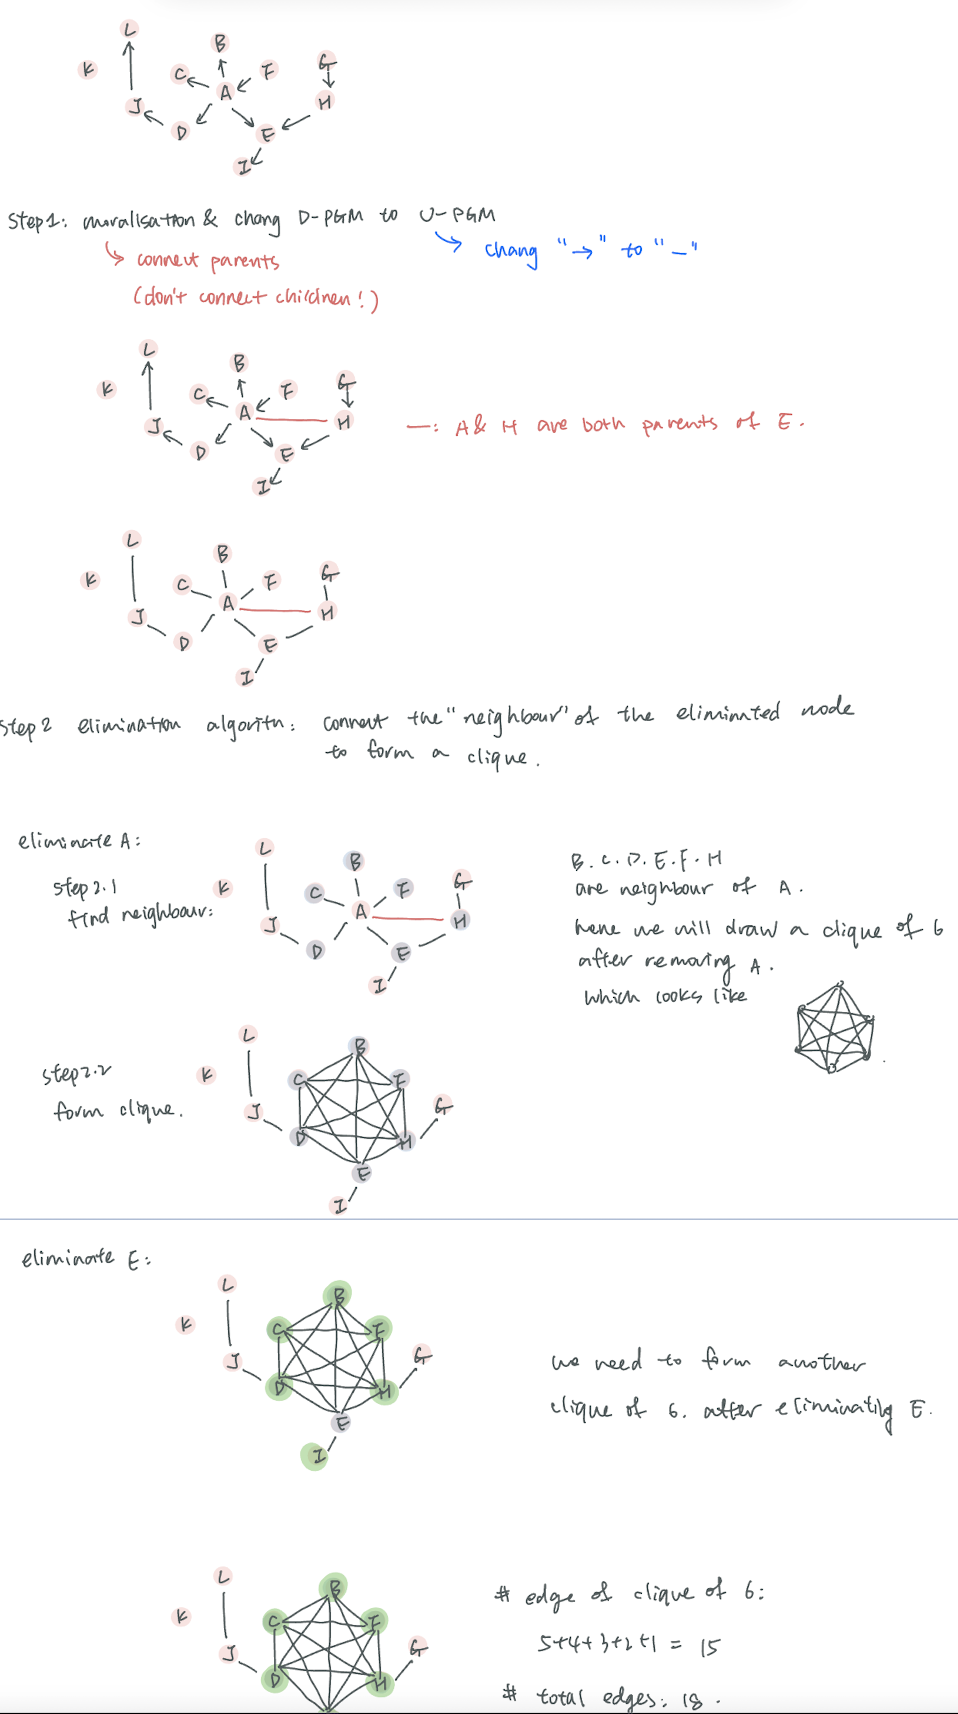 L
B
K
C
F
G
A
J
H
D
E
I
Step1: moralisation & chang D-PGM to U-PGM
chang "→" to "—"
connect parents
(don't connect children!)
L
B
K
C
F
G
A
J
H
D
E
I
—: A & H are both parents of E.
L
B
K
C
F
G
A
J
H
D
E
I
Step2 elimination algorithm: connect the "neighbour" of the eliminated node
to form a clique.
eliminate A:
step2.1
find neighbour:
L
B
K
C
F
G
A
J
H
D
E
I
B. C. D. E. F. H
are neighbour of A.
here we will draw a clique of 6
after removing A.
which looks like
step2.2
form clique.
L
B
K
C
F
G
J
D
H
E
I
eliminate E:
L
B
K
C
F
G
J
D
H
E
I
we need to form another
clique of 6. after eliminating E.
L
B
K
C
F
G
J
D
H
# edge of clique of 6:
5+4+3+2+1 = 15
# total edges: 18.